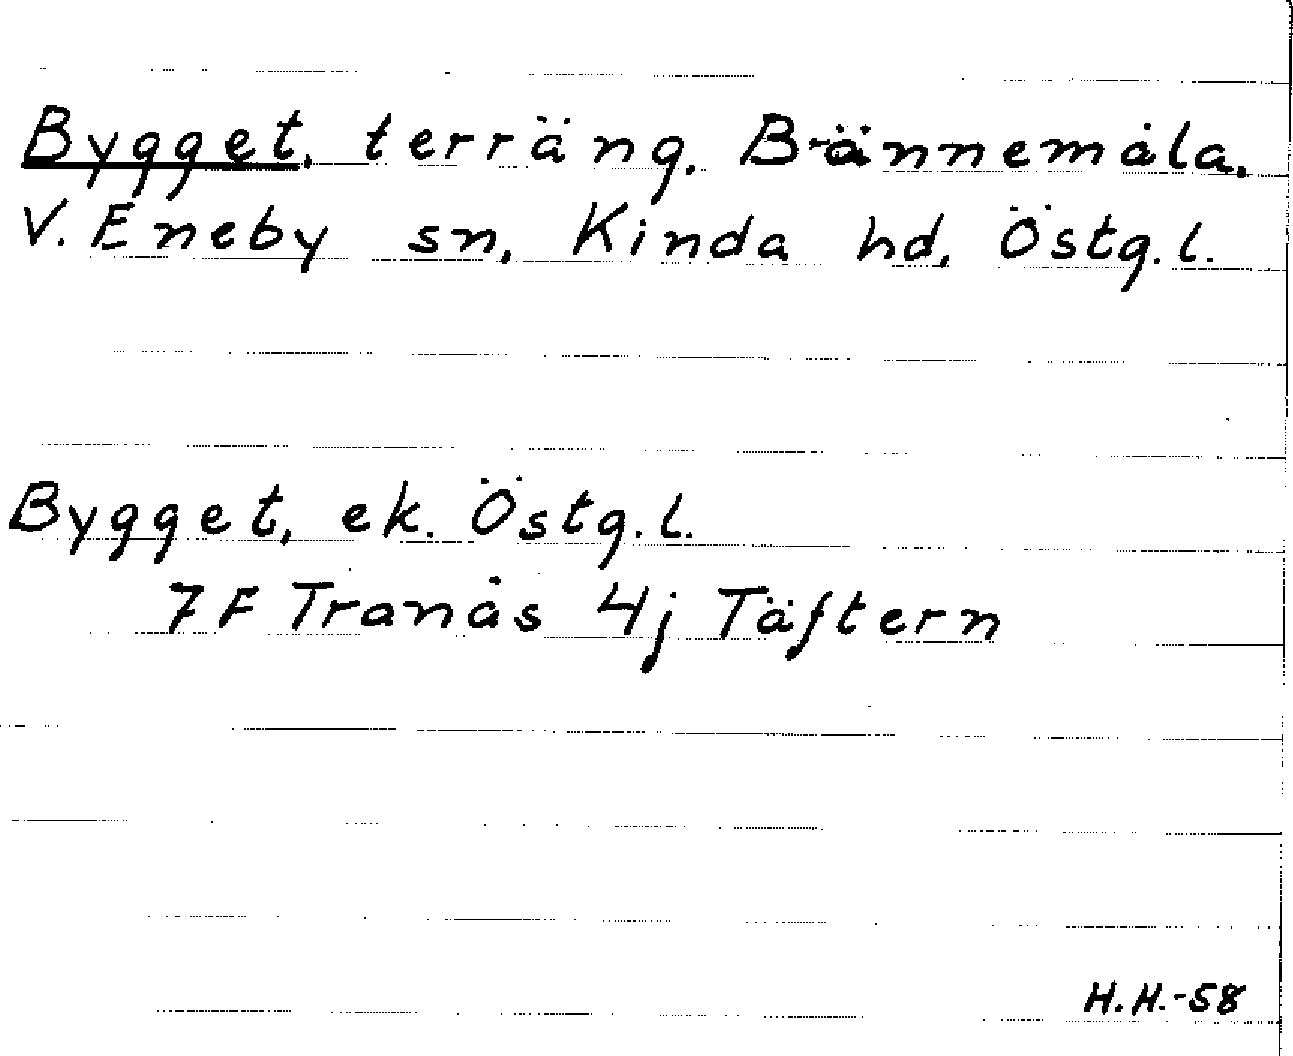 Bygget, terräng. Brännemåla,
V. Eneby sn, Kinda hd, Östg. l.
Bygget, ek. Östg. l.
7F Tranås 4j Täftern
H.H.-58